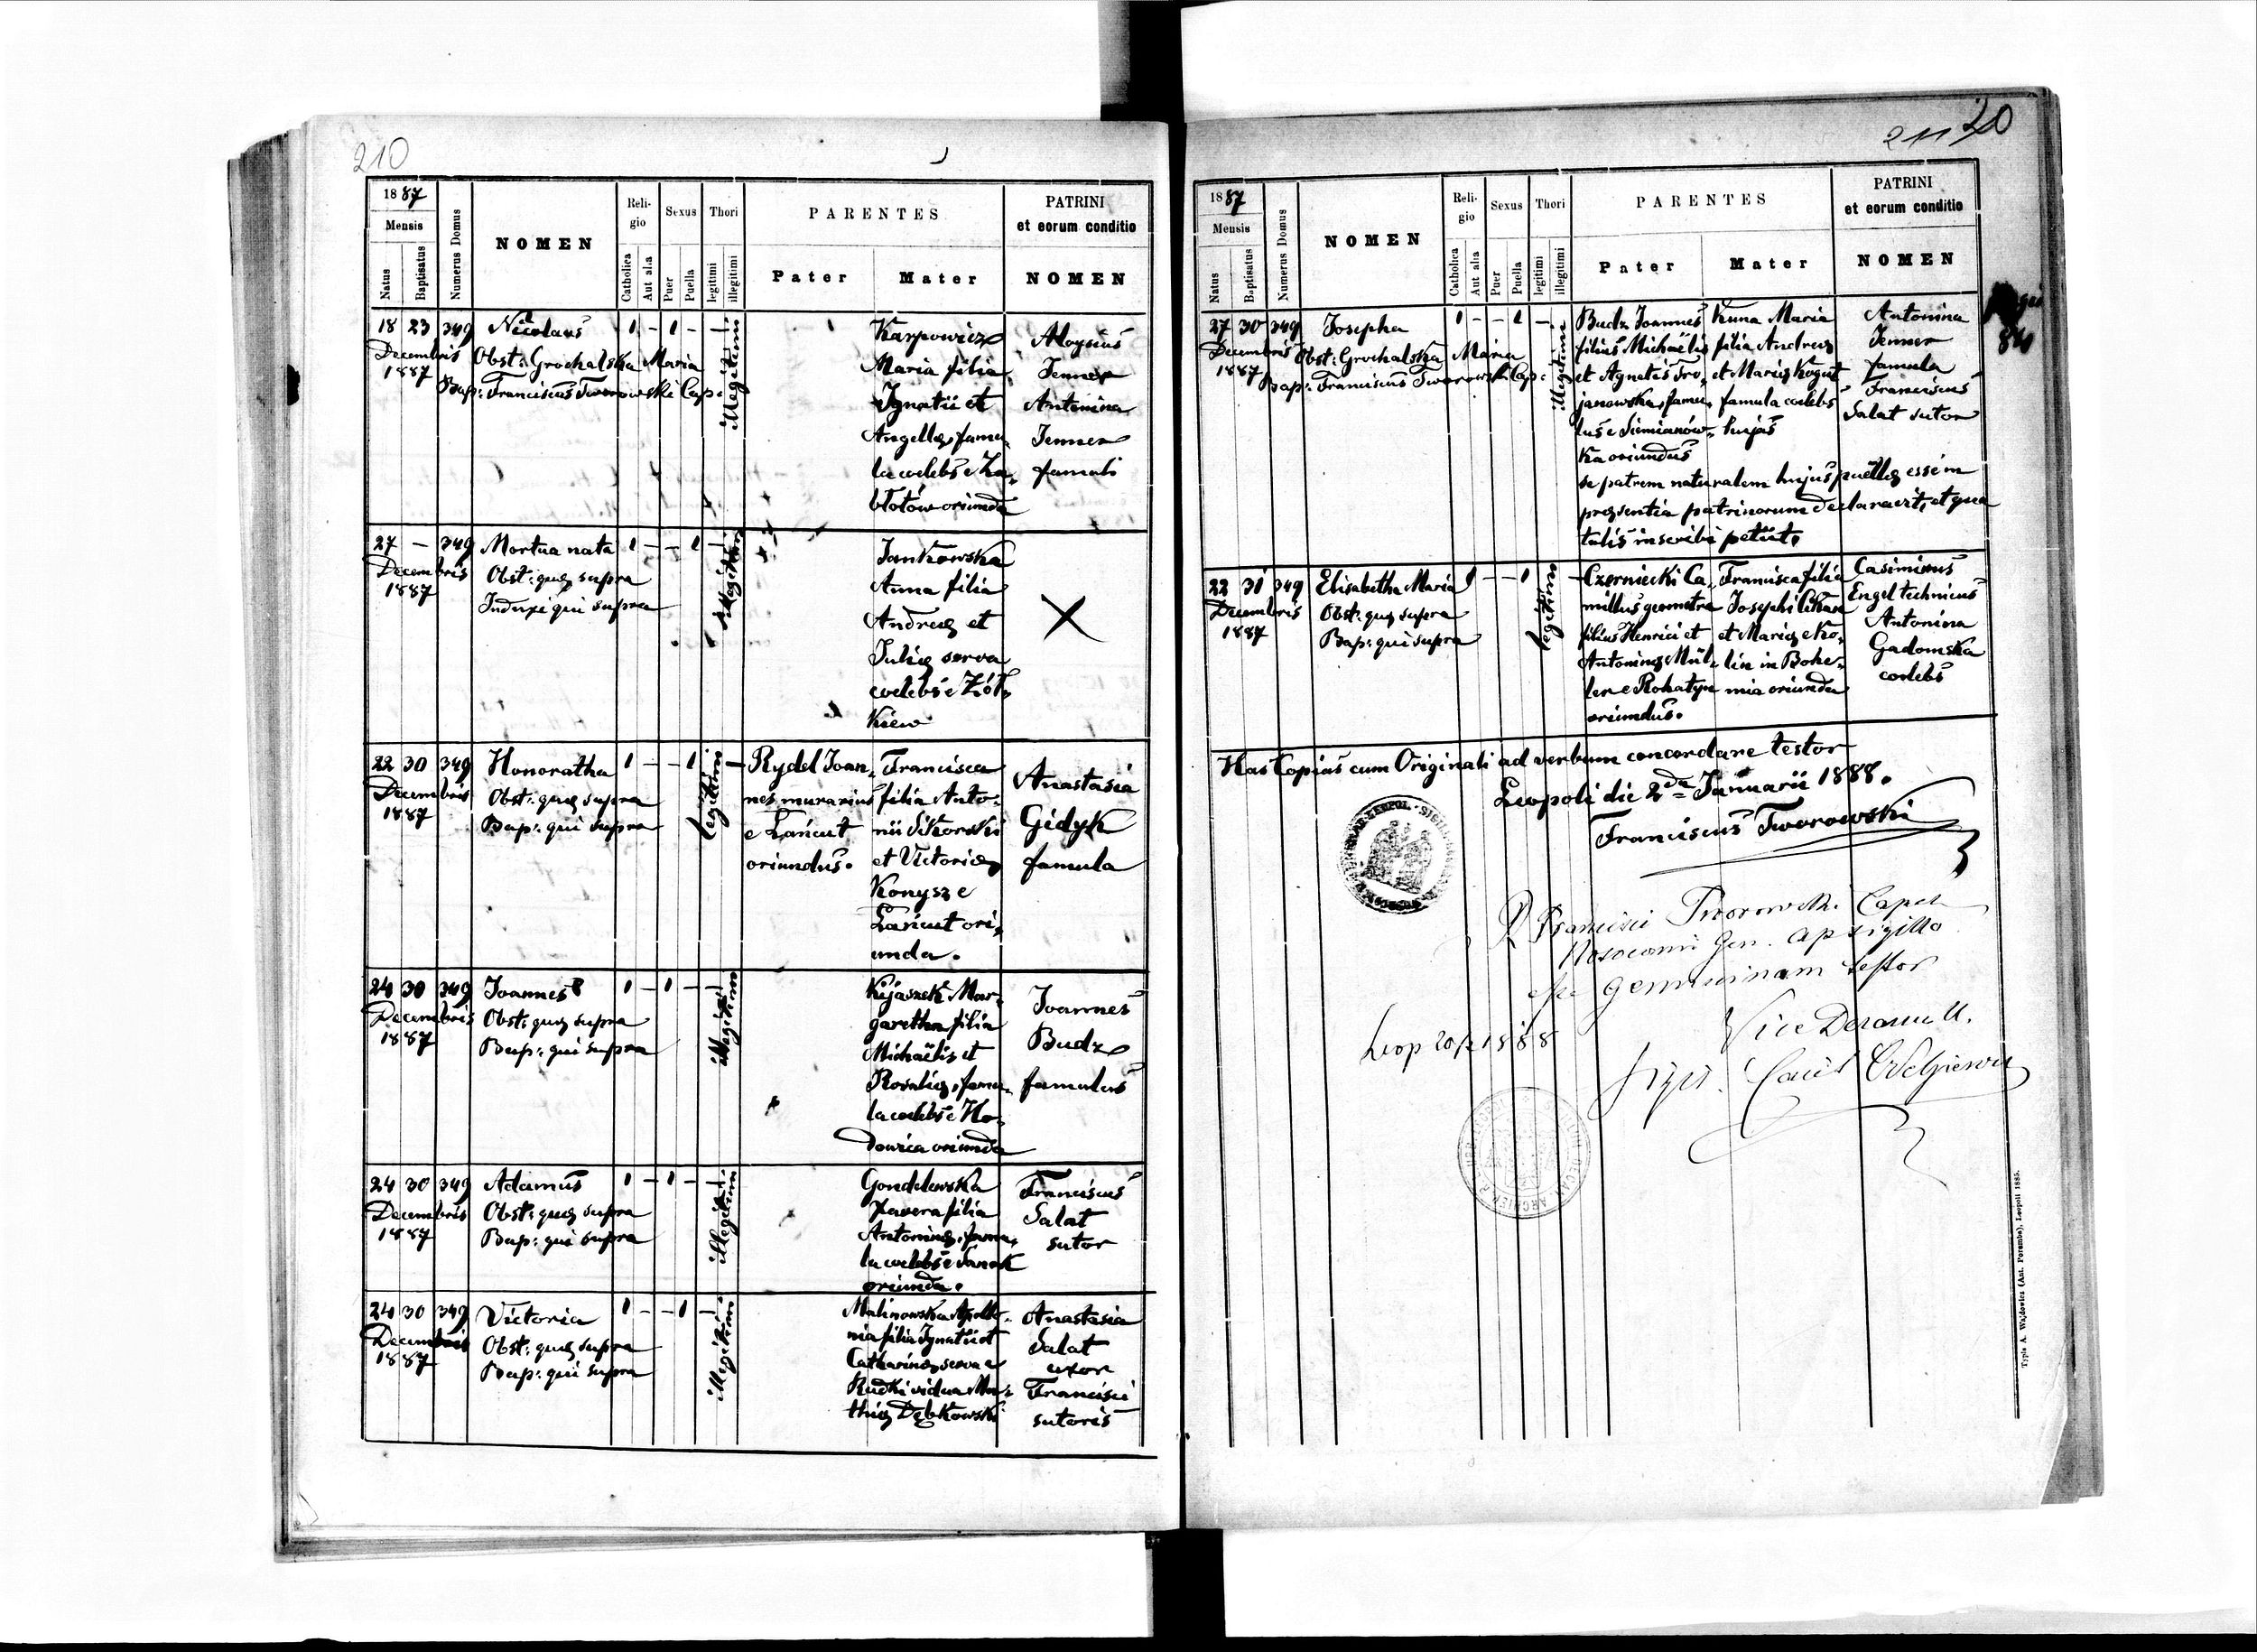 210
1887
Mensis
Natus
Baptisatus
Numerus Domus
NOMEN
Religio
Catholica
Aut alia
Sexus
Puer
Puella
Thori
legitimi
illegitimi
PARENTES
Pater
Mater
PATRINI
et eorum conditio
NOMEN
18 23 349 Nicolaus 1 - 1 - -
Decembris
1887
Obst: Grochalska Maria
Bap: Franciscus Tworowski Cap.
illegitimi
Karpowicz
Maria filia
Ignatii et
Angellę, famu,
la coelebs e Za,
błotów oriunda
Aloysius
Jenner
Antonina
Jenner
famuli
27 - 349 Mortua nata 1 - - 1 -
Decembris
1887
Obst: quę supra
Induxi qui supra
illegitimi
Jankowska
Anna filia
Andreę et
Julię serva
coelebs e Żół,
kiew
22 30 349 Honoratha 1 - - 1 -
Decembris
1887
Obst: quę supra
Bap: qui supra
legitimi
Rydel Joan,
nes murarius
e Łańcut
oriundus.
Francisca
filia Anto-
nii Sikorski
et Victorię
Konysz e
Łańcut ori,
unda.
Anastasia
Gidyk
famula
24 30 349 Joannes 1 - 1 - -
Decembris
1887
Obst: quę supra
Bap: qui supra
illegitimi
Kijaszek Mar-
garetha filia
Michaëlis et
Rosalię, famu,
la coelebs e Ho-
dowica oriunda
Joannes
Budz
famulus
24 30 349 Adamus 1 - 1 - -
Decembris
1887
Obst: quę supra
Bap: qui supra
illegitimi
Gondelowska
Xavera filia
Antoninę, famu,
la coelebs e Sanok
oriunda.
Franciscus
Salat
sutor
24 30 349 Victoria 1 - - 1 -
Decembris
1887
Obst: quę supra
Bap: qui supra
illegitimi
Malinowska Apollo-
nia filia Ignatii et
Catharinę serva e
Rudki vidua Ma-
thię Dębkowski
Anastasia
Salat
uxor
Francisci
sutoris
211 20
1887
Mensis
Natus
Baptisatus
Numerus Domus
NOMEN
Religio
Catholica
Aut alia
Sexus
Puer
Puella
Thori
legitimi
illegitimi
PARENTES
Pater
Mater
PATRINI
et eorum conditio
NOMEN
27 30 349 Josepha 1 - - 1 -
Decembris
1887
Obst: Grochalska Maria
Bap: Franciscus Tworowski Cap:
illegitimi
Budz Joannes
filius Michaëlis
et Agnetis Tro,
janowska, famu,
lus e Siemianów-
ka oriundus
Kuna Maria
filia Andreę
et Marię Kogut
famula coelebs
hujas
se patrem naturalem hujus puellę esse in
pręsentia patrinorum declaravit, et qua
talis inscribi petiit.
Antonina
Jenner
famula
Franciscus
Salat sutor
22 31 349 Elisabetha Maria 1 - - 1 -
Decembris
1887
Obst: quę supra
Bap: qui supra
legitimi
Czerniecki Ca-
millus geometra
filius Henrici et
Antoninę Mül-
ler e Rohatyn
oriundus.
Francisca filia
Josephi
et Marię e Ko-
lin in Bohe-
mia oriunda
Casimirus
Engel technicus
Antonina
Gadomska
coelebs
Has Copias cum Originali ad verbum concordare testor
Leopoli die 2da Januarii 1888.
Franciscus Tworowski
Francisci Tworowski Capel
Nosocomii Gen. ap sigillo
esse genuinam testor
Leop 20/2 1888
Vice Decanu
Typis A. Wajdowicz (Ant. Poremba), Leopoli 1885.